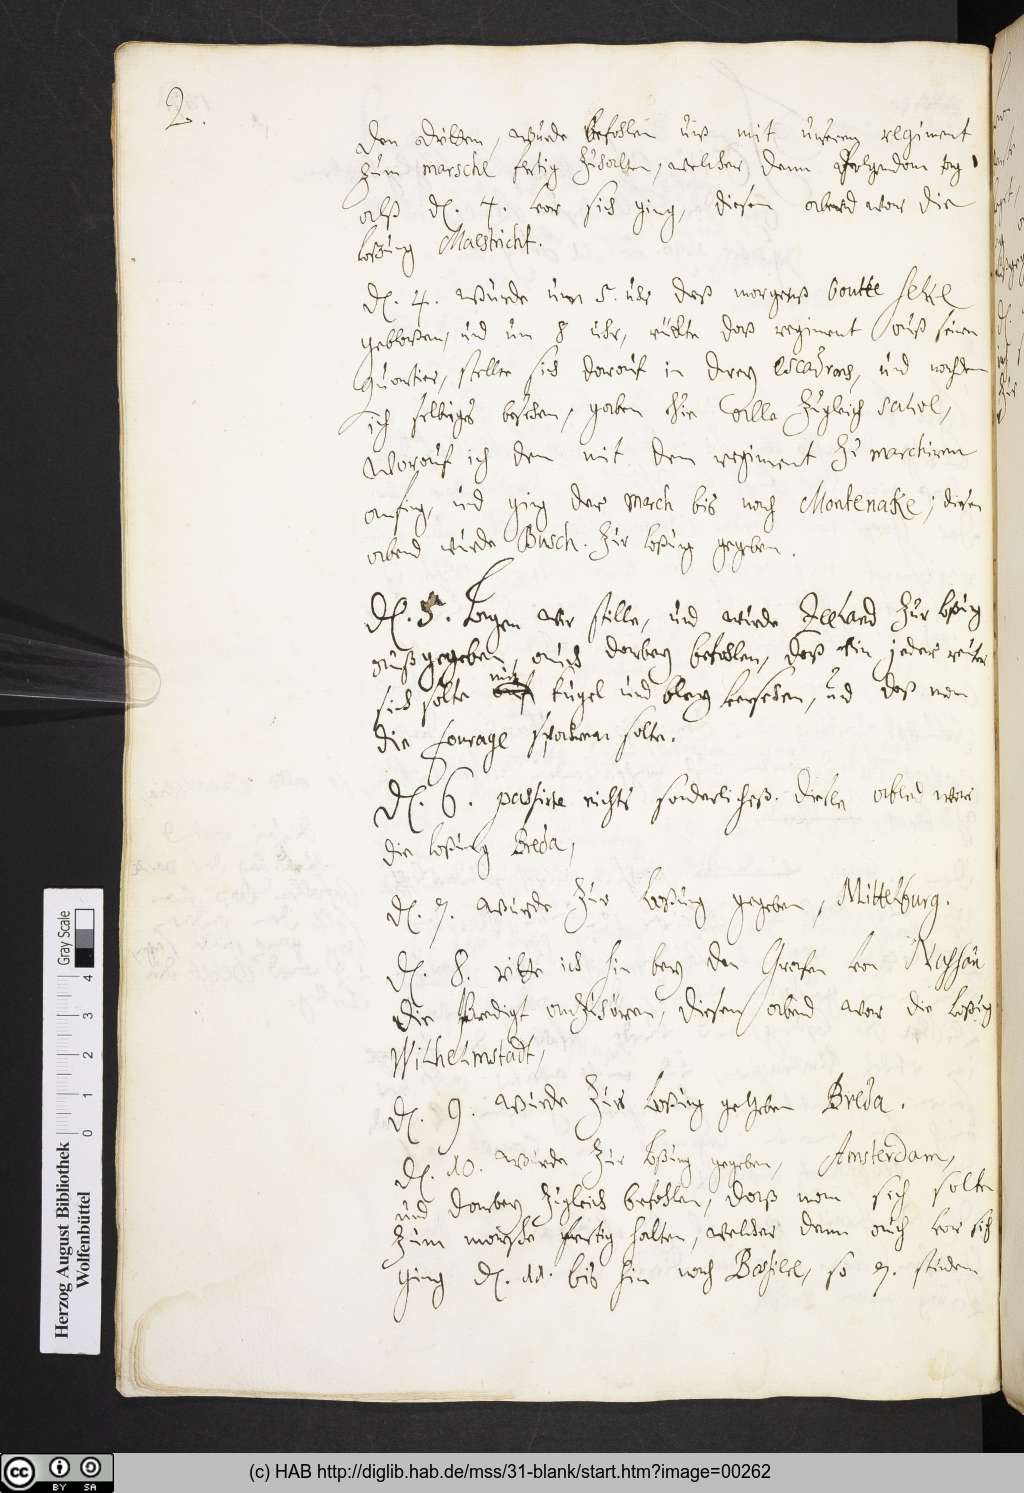 2.
den dritten, wurde befohlen unß mit unserem regiment
zum marsche fertig zuhalten, welcher denn folgendem tag
alß d. 4. vor sich ging, diesen abend war die
loßung Maestricht.
d. 4. wurde um 5. uhr deß morgenß boutte selle
geblaßen, und um 8 uhr, rückte daß regiment auß seinen
quartier, stelte sich darauf in drey escadrons, und nachdem
ich selbiges besehen, gaben sie alle zugleich salve,
worauf ich den mit dem regiment zu marchiren
anfing, und ging der march bis nach Montenake, diesen
abend wurde Busch. zur loßung gegeben.
D. 5. lagen wir stille, und wurde zur loßung
außgegeben, auch darbey befohlen, daß ein jeder reuter
sich solte mit kugel und bley versehen, und daß man
die fourage spahren solte.
D. 6. passirte nichts sonderliches. dieße abend war
die loßung Breda,
d. 7. wurde zur loßung gegeben, Mittelburg.
D. 8. ritte ich hin bey den Grafen von Nassau
die Predigt anzuhören, diesen abend war die loßung
Wilhelmstadt,
d. 9. wurde zur loßung gegeben Breda.
D. 10. wurde zur loßung gegeben, Amsterdam,
und darbey zugleich befohlen, daß man sich solte
zum marsche fertig halten, welcher denn auch vor sich
ging d. 11. bis hin nach so 7. stunden
Herzog August Bibliothek
Wolfenbüttel
0 1 2 3 4
Gray Scale
cc BY SA
(c) HAB http://diglib.hab.de/mss/31-blank/start.htm?image=00262